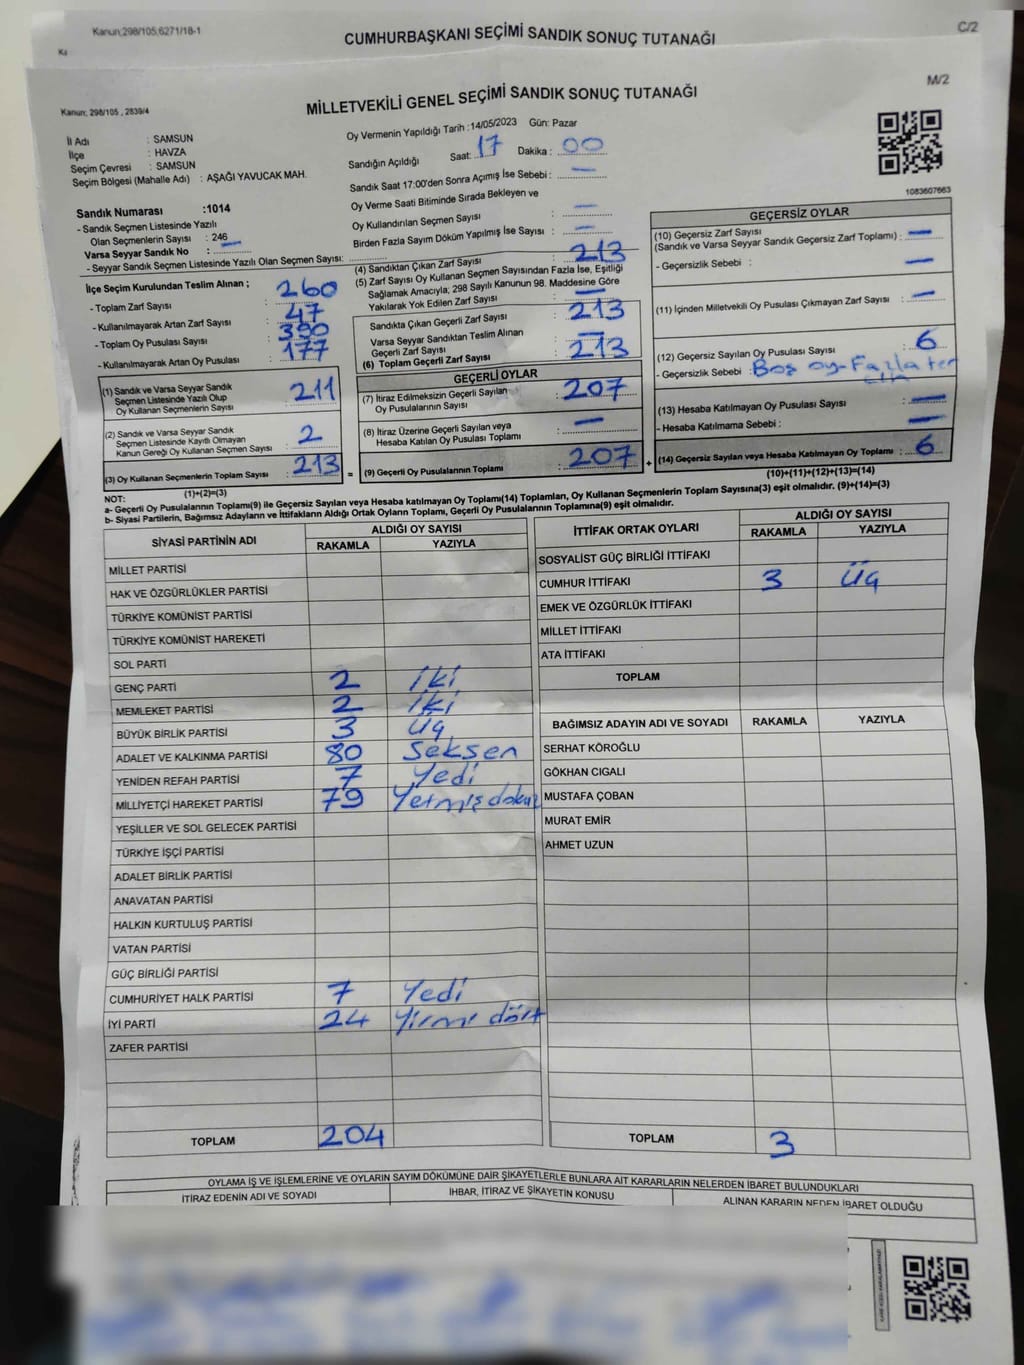 Kanun;298/105,6271/18-1
C/2
CUMHURBAŞKANI SEÇİMİ SANDIK SONUÇ TUTANAĞI
M/2
Kanun; 298/105 , 2839/4
MİLLETVEKİLİ GENEL SEÇİMİ SANDIK SONUÇ TUTANAĞI
İl Adı : SAMSUN
İlçe : HAVZA
Seçim Çevresi : SAMSUN
Seçim Bölgesi (Mahalle Adı) : AŞAĞI YAVUCAK MAH.
Oy Vermenin Yapıldığı Tarih :14/05/2023 Gün: Pazar
Sandığın Açıldığı Saat: 17 Dakika : 00
Sandık Saat 17:00'den Sonra Açımış İse Sebebi : —
Oy Verme Saati Bitiminde Sırada Bekleyen ve
Oy Kullandırılan Seçmen Sayısı : —
Birden Fazla Sayım Döküm Yapılmış İse Sayısı : —
1083607663
Sandık Numarası :1014
- Sandık Seçmen Listesinde Yazılı
Olan Seçmenlerin Sayısı : 246
Varsa Seyyar Sandık No : —
- Seyyar Sandık Seçmen Listesinde Yazılı Olan Seçmen Sayısı:
İlçe Seçim Kurulundan Teslim Alınan ;
- Toplam Zarf Sayısı : 260
- Kullanılmayarak Artan Zarf Sayısı : 47
- Toplam Oy Pusulası Sayısı : 390
- Kullanılmayarak Artan Oy Pusulası : 177
(1) Sandık ve Varsa Seyyar Sandık
Seçmen Listesinde Yazılı Olup
Oy Kullanan Seçmenlerin Sayısı : 211
(2) Sandık ve Varsa Seyyar Sandık
Seçmen Listesinde Kayıtlı Olmayan
Kanun Gereği Oy Kullanan Seçmen Sayısı : 2
(3) Oy Kullanan Seçmenlerin Toplam Sayısı : 213
(1)+(2)=(3)
(4) Sandıktan Çıkan Zarf Sayısı : 213
(5) Zarf Sayısı Oy Kullanan Seçmen Sayısından Fazla İse, Eşitliği
Sağlamak Amacıyla; 298 Sayılı Kanunun 98. Maddesine Göre
Yakılarak Yok Edilen Zarf Sayısı : —
Sandıkta Çıkan Geçerli Zarf Sayısı : 213
Varsa Seyyar Sandıktan Teslim Alınan
Geçerli Zarf Sayısı : —
(6) Toplam Geçerli Zarf Sayısı : 213
GEÇERLİ OYLAR
(7) İtiraz Edilmeksizin Geçerli Sayılan
Oy Pusulalarının Sayısı : 207
(8) İtiraz Üzerine Geçerli Sayılan veya
Hesaba Katılan Oy Pusulası Toplamı : —
= (9) Geçerli Oy Pusulalarının Toplamı : 207 +
GEÇERSİZ OYLAR
(10) Geçersiz Zarf Sayısı
(Sandık ve Varsa Seyyar Sandık Geçersiz Zarf Toplamı) : —
- Geçersizlik Sebebi : —
(11) İçinden Milletvekili Oy Pusulası Çıkmayan Zarf Sayısı : —
(12) Geçersiz Sayılan Oy Pusulası Sayısı : 6
- Geçersizlik Sebebi : Boş oy-Fazla
(13) Hesaba Katılmayan Oy Pusulası Sayısı : —
- Hesaba Katılmama Sebebi : —
(14) Geçersiz Sayılan veya Hesaba Katılmayan Oy Toplamı : 6
(10)+(11)+(12)+(13)=(14)
NOT:
a- Geçerli Oy Pusulalarının Toplamı(9) ile Geçersiz Sayılan veya Hesaba katılmayan Oy Toplamı(14) Toplamları, Oy Kullanan Seçmenlerin Toplam Sayısına(3) eşit olmalıdır. (9)+(14)=(3)
b- Siyasi Partilerin, Bağımsız Adayların ve İttifakların Aldığı Ortak Oyların Toplamı, Geçerli Oy Pusulalarının Toplamına(9) eşit olmalıdır.
SİYASİ PARTİNİN ADI ALDIĞI OY SAYISI
RAKAMLA YAZIYLA
MİLLET PARTİSİ
HAK VE ÖZGÜRLÜKLER PARTİSİ
TÜRKİYE KOMÜNİST PARTİSİ
TÜRKİYE KOMÜNİST HAREKETİ
SOL PARTİ
GENÇ PARTİ 2 iki
MEMLEKET PARTİSİ 2 iki
BÜYÜK BİRLİK PARTİSİ 3 üç
ADALET VE KALKINMA PARTİSİ 80 Seksen
YENİDEN REFAH PARTİSİ 7 Yedi
MİLLİYETÇİ HAREKET PARTİSİ 79 Yetmiş dokuz
YEŞİLLER VE SOL GELECEK PARTİSİ
TÜRKİYE İŞÇİ PARTİSİ
ADALET BİRLİK PARTİSİ
ANAVATAN PARTİSİ
HALKIN KURTULUŞ PARTİSİ
VATAN PARTİSİ
GÜÇ BİRLİĞİ PARTİSİ
CUMHURİYET HALK PARTİSİ 7 Yedi
İYİ PARTİ 24 Yirmi dört
ZAFER PARTİSİ
TOPLAM 204
İTTİFAK ORTAK OYLARI ALDIĞI OY SAYISI
RAKAMLA YAZIYLA
SOSYALİST GÜÇ BİRLİĞİ İTTİFAKI
CUMHUR İTTİFAKI 3 üç
EMEK VE ÖZGÜRLÜK İTTİFAKI
MİLLET İTTİFAKI
ATA İTTİFAKI
TOPLAM
BAĞIMSIZ ADAYIN ADI VE SOYADI RAKAMLA YAZIYLA
SERHAT KÖROĞLU
GÖKHAN CIGALI
MUSTAFA ÇOBAN
MURAT EMİR
AHMET UZUN
TOPLAM 3
OYLAMA İŞ VE İŞLEMLERİNE VE OYLARIN SAYIM DÖKÜMÜNE DAİR ŞİKAYETLERLE BUNLARA AİT KARARLARIN NELERDEN İBARET BULUNDUKLARI
İTİRAZ EDENİN ADI VE SOYADI İHBAR, İTİRAZ VE ŞİKAYETİN KONUSU ALINAN KARARIN NEDEN İBARET OLDUĞU